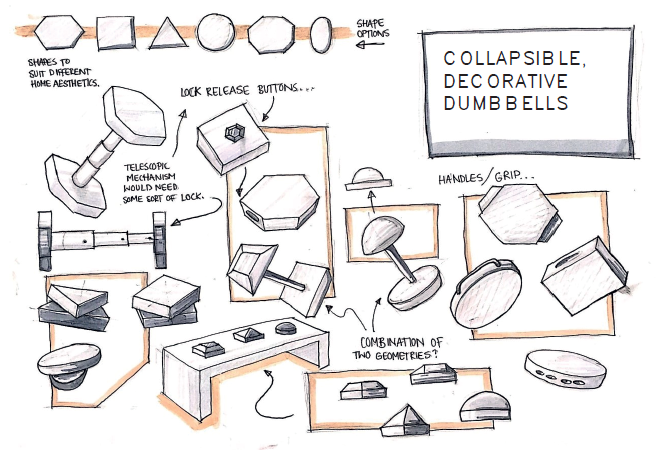 SHAPE
OPTIONS
SHAPES TO
SUIT DIFFERENT
HOME AESTHETICS.
COLLAPSIBLE,
DECORATIVE
DUMBBELLS
LOCK RELEASE BUTTONS...
TELESCOPIC
MECHANISM
WOULD NEED
SOME SORT OF LOCK.
HANDLES/GRIP...
COMBINATION OF
TWO GEOMETRIES?